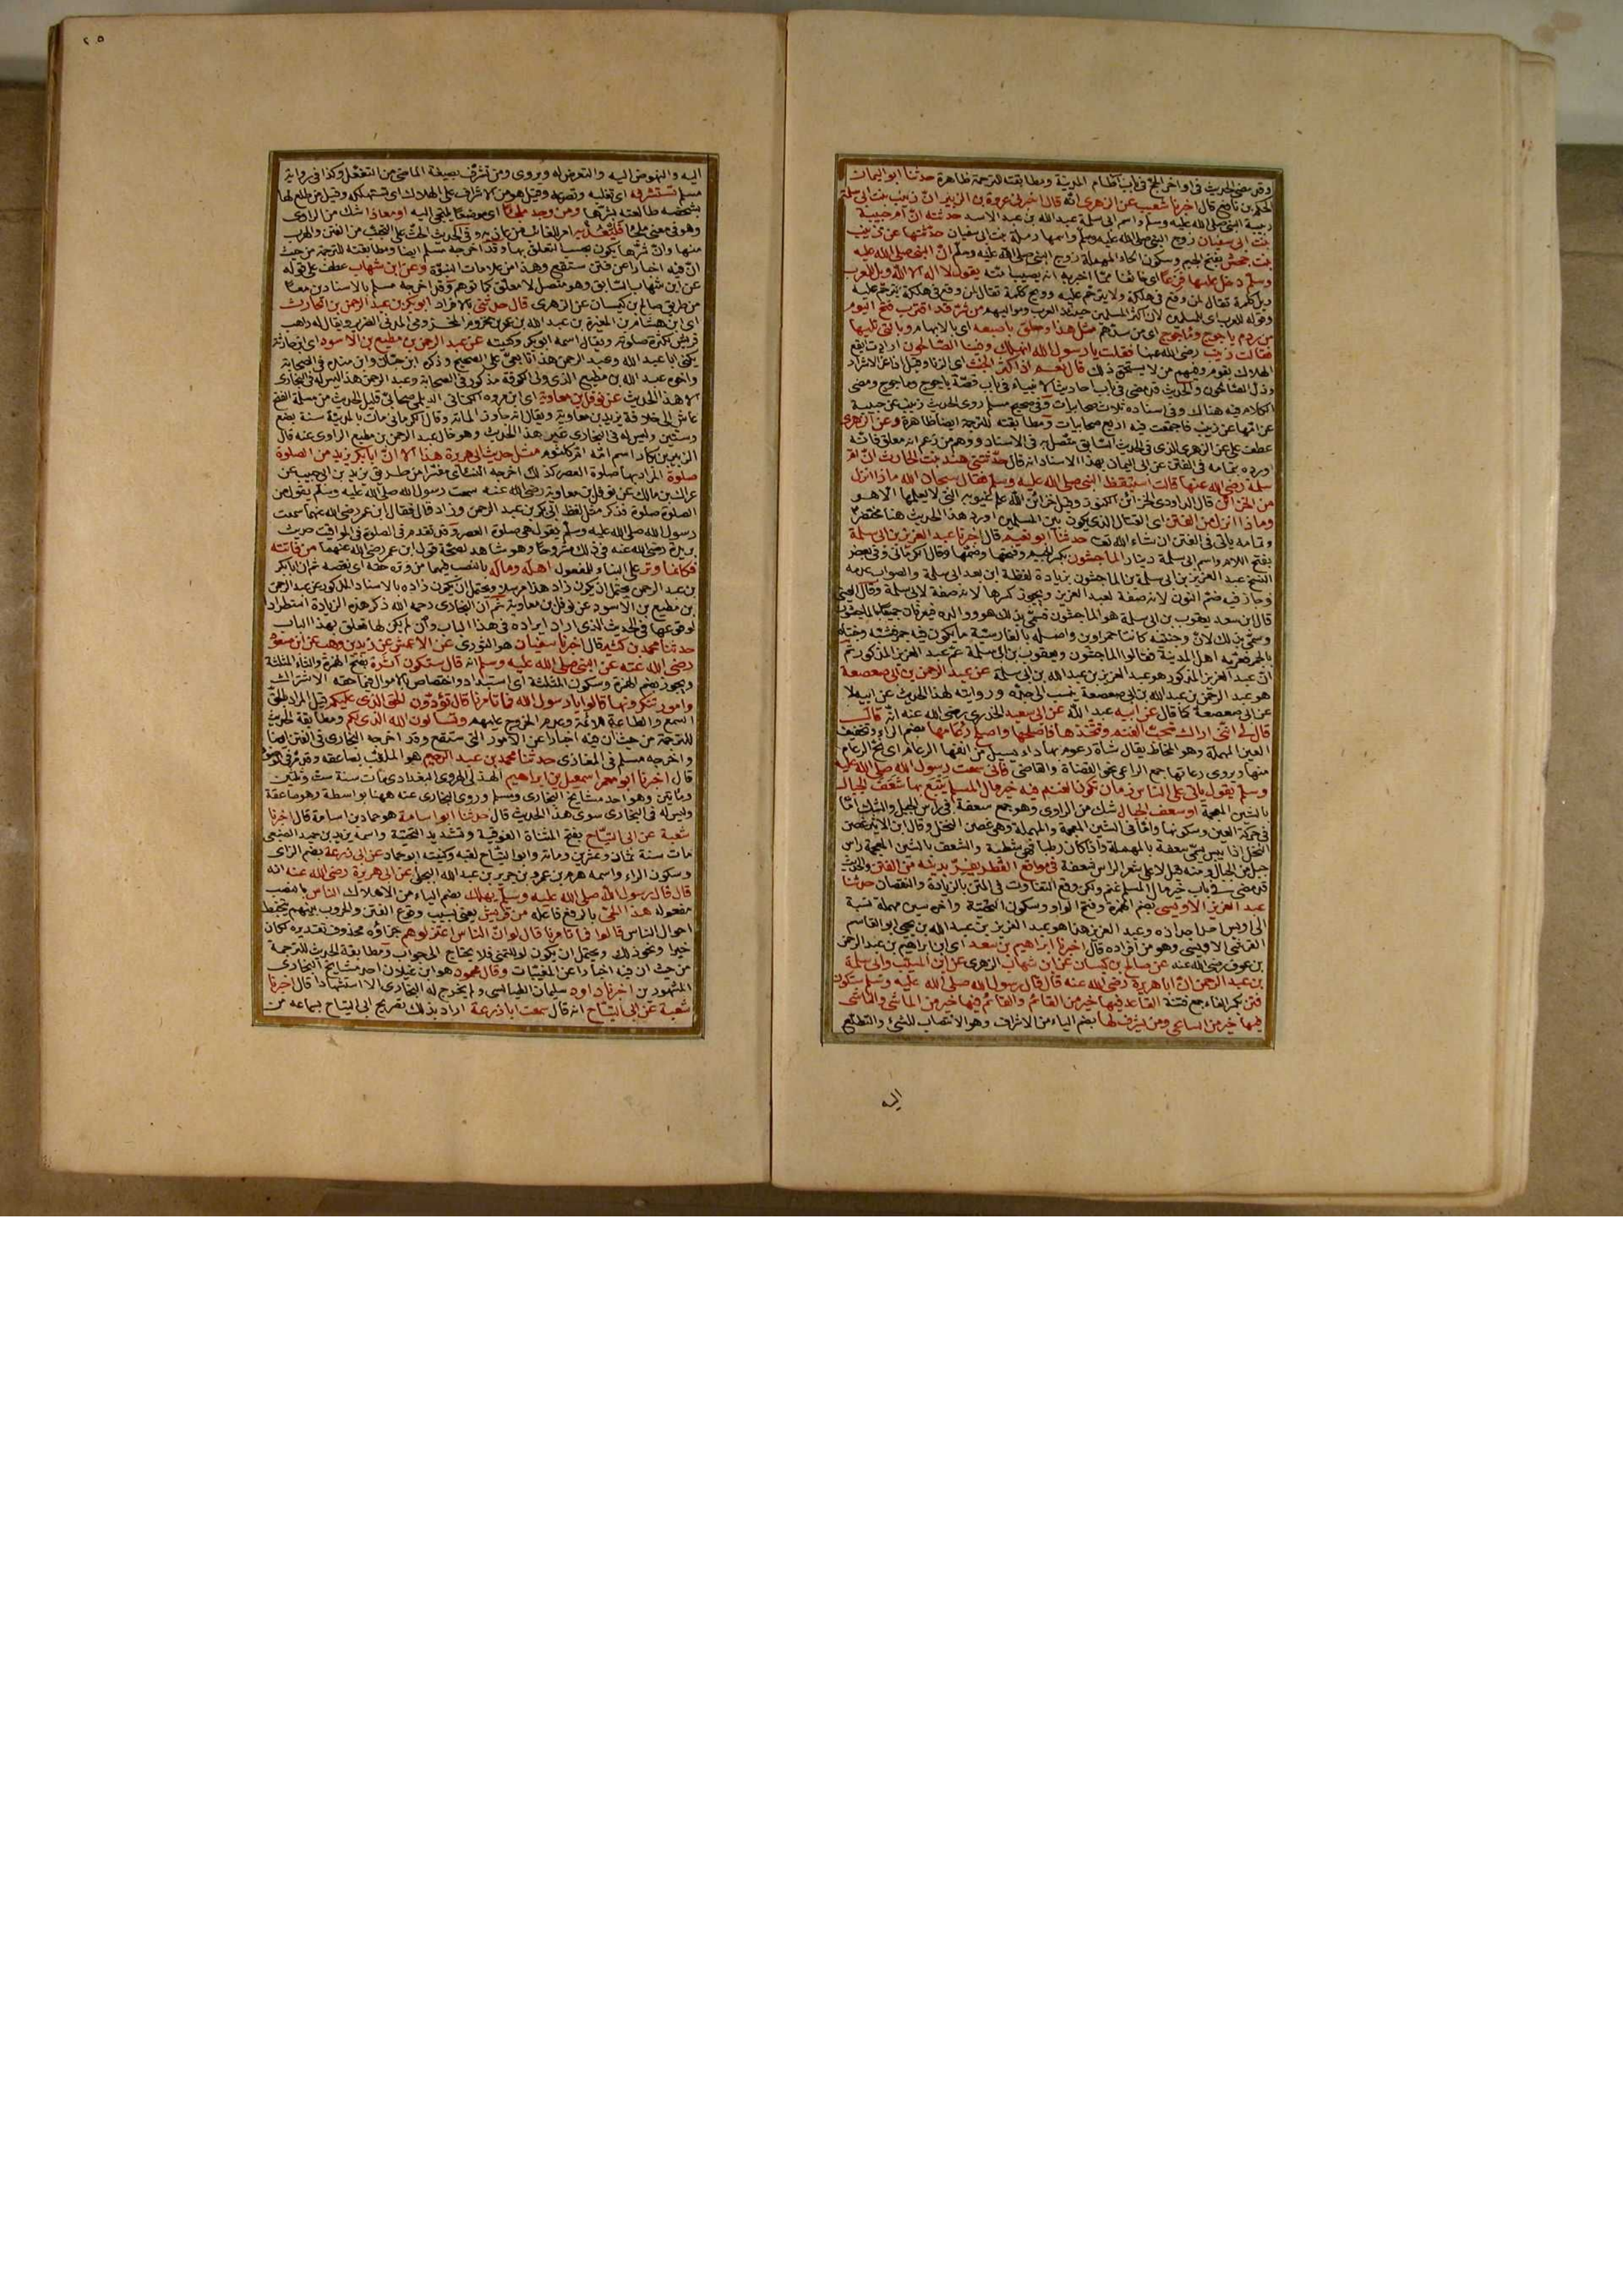 وقد مضى الحديث في اواخر الحج في باب آطام المدينة ومطابقته للترجمة ظاهرة حدثنا ابو اليمان
الحكم بن نافع قال اخبرنا شعيب عن الزهري انه قال اخبرني عروة بن الزبير ان زينب بنت ابي سلمة
ربيبة النبي صلى الله عليه وسلم واسم ابي سلمة عبد الله بن عبد الاسد حدثته ان ام حبيبة
بنت ابي سفيان زوج النبي صلى الله عليه وسلم واسمها رملة بنت ابي سفيان حدثتها عن زينب
بنت جحش بفتح الجيم وسكون الحاء المهملة زوج النبي صلى الله عليه وسلم ان النبي صلى الله عليه
وسلم دخل عليها فزعا اى خائفا مما اخبر به انه يصيب امته يقول لا اله الا الله ويل للعرب
ويل كلمة تقال لمن وقع في هلكة ولا يترحم عليه وويح كلمة تقال لمن وقع في هلكة يترحم عليه
وقوله للعرب اى للمسلمين لان اكثر المسلمين حينئذ العرب ومواليهم من شر قد اقترب فتح اليوم
من ردم ياجوج وماجوج اى من سدهم مثل هذا وحلق باصبعه اى بالابهام وبالتي تليها
فقالت زينب رضى الله عنها فقلت يا رسول الله انهلك وفينا الصالحون ارادت ايقع
الهلاك بقوم وفيهم من لا يستحق ذلك قال نعم اذا كثر الخبث اى الزنا وقيل اذا عز الاشرار
وذل الصالحون والحديث قد مضى في باب احاديث الانبياء في باب قصة ياجوج وماجوج ومضى
الكلام فيه هناك وفي اسناده ثلاث صحابيات وفي صحيح مسلم روى الحديث زينب عن حبيبة
عن امها عن زينب فاجتمعت فيه اربع صحابيات ومطابقته للترجمة ايضا ظاهرة وعن الزهري
عطف على عن الزهري الذي في الحديث السابق متصل به في الاسناد ووهم من زعم انه معلق فانه
اورده بتمامه في الفتن عن ابي اليمان بهذا الاسناد انه قال حدثتني هند بنت الحارث ان ام
سلمة رضى الله عنها قالت استيقظ النبي صلى الله عليه وسلم فقال سبحان الله ماذا انزل
من الخزائن قال الداودي الخزائن الكنوز وقيل خزائن الله علم غيوبه التي لا يعلمها الا هو
وماذا انزل من الفتن اى القتال الذي يكون بين المسلمين اورد هذا الحديث هنا مختصرا
وتمامه ياتي في الفتن ان شاء الله تعالى حدثنا ابو نعيم قال اخبرنا عبد العزيز بن ابي سلمة
بفتح اللام واسم ابي سلمة دينار الماجشون بكسر الجيم وفتحها وضمها وقال الكرماني وفي بعض
النسخ عبد العزيز بن ابي سلمة بن الماجشون بزيادة لفظة ابن بعد ابي سلمة والصواب عدمه
وجاز فيه ضم النون لانه صفة لعبد العزيز ويجوز كسرها لانه صفة لابي سلمة وقال العيني
قال ابن سعد يعقوب بن ابي سلمة هو الماجشون فسمى بذلك هو وولده فيعرفون جميعا بالماجشون
وسمى بذلك لان وجنتيه كانتا حمراوين واصله بالفارسية مايكون فيه حمر
فعربه اهل المدينة فقالوا الماجشون ويعقوب بن ابي سلمة عم عبد العزيز المذكور ثم
ان عبد العزيز المذكور هو عبد العزيز بن عبد الله بن ابي سلمة عن عبد الرحمن بن ابي صعصعة
هو عبد الرحمن بن عبد الله بن ابي صعصعة ينسب الى جده وروايته لهذا الحديث عن ابيه لا
عن ابي صعصعة كما قال عن ابيه عبد الله عن ابي سعيد الخدري رضى الله عنه انه قال
قال لي اني اراك تحب الغنم وتتخذها فاصلحها واصلح رعامها بضم الراء وتخفيف
العين المهملة وهو المخاط يقال شاة رعوم بها داء يسيل من انفها الرعام اى نح الرعام
منها ويروى رعاتها جمع الراعي نحو القضاة والقاضي فاني سمعت رسول الله صلى الله عليه
وسلم يقول ياتي على الناس زمان تكون الغنم فيه خير مال المسلم يتبع بها شعف الجبال
بالشين المعجمة او سعف الجبال شك من الراوي وهو جمع سعفة اى راس الجبل والشك اما
في حركة العين وسكونها واما في الشين المعجمة والمهملة وهي غصن النخل وقال ابن الاثير غصن
النخل اذا يبس سمى سعفة بالمهملة واذا كان رطبا فهي شطبة والشعف بالشين المعجمة راس
جبل من الجبال ومنه قيل لاعلى شعر الراس شعفة في مواقع القطر يفر بدينه من الفتن والحديث
قد مضى في باب خير مال المسلم غنم ولكن وقع التفاوت في المتن بالزيادة والنقصان حدثنا
عبد العزيز الاويسي بضم الهمزة وفتح الواو وسكون التحتية واخره سين مهملة نسبة
الى اويس احد اجداده وعبد العزيز هذا هو عبد العزيز بن عبد الله بن يحيى ابو القاسم
القرشي الاويسي وهو من افراده قال اخبرنا ابراهيم بن سعد اى ابن ابراهيم بن عبد الرحمن
بن عوف رضى الله عنه عن صالح بن كيسان عن ابن شهاب الزهري عن ابن المسيب وابي سلمة
بن عبد الرحمن ان ابا هريرة رضى الله عنه قال قال رسول الله صلى الله عليه وسلم ستكون
فتن بكسر الفاء جمع فتنة القاعد فيها خير من القائم والقائم فيها خير من الماشي والماشي
فيها خير من الساعي ومن يشرف لها بضم الياء من الاشراف وهو الانتصاب للشئ والتطلع
اليه
٢٠٥
اليه والنهوض اليه والتعرض له ويروى ومن تشرف بصيغة الماضي من التفعل وكذا في رواية
مسلم تستشرفه اى تغلبه وتصرعه وقيل هو من الاشراف على الهلاك اى تستهلكه وقيل من طلع لها
بشخصه طالعته بشرها ومن وجد ملجأ اى موضعا يلتجي اليه او معاذا شك من الراوي
وهو في معنى ملجأ فليعذ به امر للغائب من عاذ به وفي الحديث الحث على التجنب من الفتن والهرب
منها وان شرها يكون بحسب التعلق بها وقد اخرجه مسلم ايضا ومطابقته للترجمة من حيث
ان فيه اخبارا عن فتن ستقع وهذا من علامات النبوة وعن ابن شهاب عطف على قوله
عن ابن شهاب السابق وهو متصل لا معلق كما توهم وقد اخرجه مسلم بالاسنادين معا
من طريق صالح بن كيسان عن الزهري قال حدثني بالافراد ابو بكر بن عبد الرحمن بن الحارث
اى ابن هشام بن المغيرة بن عبد الله بن عمر بن مخزوم المخزومي المدني الضرير ويقال له راهب
قريش لكثرة صلوته ويقال اسمه ابو بكر وكنيته عن عبد الرحمن بن مطيع بن الاسود اى ابن حارثة
يكنى ابا عبد الله وعبد الرحمن هذا تابعي على الصحيح وذكره ابن حبان وابن منده في الصحابة
واخوه عبد الله بن مطيع الذي ولى الكوفة مذكور في الصحابة وعبد الرحمن هذا ليس له في البخاري
الا هذا الحديث عن نوفل بن معاوية اى ابن عروة الكناني الديلي صحابي قليل الحديث من مسلمة الفتح
عاش الى خلافة يزيد بن معاوية ويقال انه جاوز المائة وقال الكرماني مات بالمدينة سنة بضع
وستين وليس له في البخاري غير هذا الحديث وهو خال عبد الرحمن بن مطيع الراوي عنه قال
الزبير بن بكار اسم امه ام كلثوم مثل حديث ابي هريرة هذا الا ان ابا بكر يزيد من الصلوة
صلوة المراد بها صلوة العصر كذلك اخرجه النسائي مفسرا من طريق يزيد بن ابي حبيب عن
عراك بن مالك عن نوفل بن معاوية رضى الله عنه سمعت رسول الله صلى الله عليه وسلم يقول من
الصلوة صلوة فذكر مثل لفظ ابي بكر بن عبد الرحمن وزاد قال فقال ابن عمر رضى الله عنهما سمعت
رسول الله صلى الله عليه وسلم يقول هي صلوة العصر وقد تقدم في الصلوة في المواقيت حديث
بريدة رضى الله عنه في ذلك مشروحا وهو شاهد لصحة قول ابن عمر رضى الله عنهما من فاتته
فكانما وتر على البناء للمفعول اهله وماله بالنصب فيهما من وتره حقه اى نقصه ثم ان ابا بكر
بن عبد الرحمن يحتمل ان يكون زاد هذا مرسلا ويحتمل ان يكون زاده بالاسناد المذكور عن عبد الرحمن
بن مطيع بن الاسود عن نوفل بن معاوية ثم ان البخاري رحمه الله ذكر هذه الزيادة استطرادا
لوقوعها في الحديث الذي اراد ايراده في هذا الباب وان لم يكن لها تعلق بهذا الباب
حدثنا محمد بن كثير قال اخبرنا سفيان هو الثوري عن الاعمش عن زيد بن وهب عن ابن مسعود
رضى الله عنه عن النبي صلى الله عليه وسلم انه قال ستكون اثرة بفتح الهمزة والثاء المثلثة
ويجوز بضم الهمزة وسكون المثلثة اى استبداد واختصاص بالاموال فيما حقه الاشتراك
وامور تنكرونها قالوا يا رسول الله فما تامرنا قال تؤدون الحق الذي عليكم قيل المراد بالحق
السمع والطاعة للائمة وعدم الخروج عليهم وتسالون الله الذي لكم ومطابقة الحديث
للترجمة من حيث ان فيه اخبارا عن الامور التي ستقع وقد اخرجه البخاري في الفتن ايضا
واخرجه مسلم في المغازي حدثنا محمد بن عبد الرحيم هو الملقب بصاعقة وقد مر في الوضوء
قال اخبرنا ابو معمر اسمعيل بن ابراهيم الهذلي الهروي البغدادي مات سنة ست وثلثين
ومائتين وهو احد مشايخ البخاري ومسلم وروى البخاري عنه ههنا بواسطة وهو صاعقة
وليس له في البخاري سوى هذا الحديث قال حدثنا ابو اسامة هو حماد بن اسامة قال اخبرنا
شعبة عن ابي التياح بفتح المثناة الفوقية وتشديد التحتية واسمه يزيد بن حميد الضبعي
مات سنة ثمان وعشرين ومائة وابو التياح لقبه وكنيته ابو حماد عن ابي زرعة بضم الزاى
وسكون الراء واسمه هرم بن عمرو بن جرير بن عبد الله البجلي عن ابي هريرة رضى الله عنه انه
قال قال رسول الله صلى الله عليه وسلم يهلك بضم الياء من الاهلاك الناس بالنصب
مفعوله هذا الحي بالرفع فاعله من قريش يعني بسبب وقوع الفتن والحروب بينهم يتخبط
احوال الناس قالوا فما تامرنا قال لو ان الناس اعتزلوهم جزاؤه محذوف تقديره لكان
خيرا ونحو ذلك ويحتمل ان يكون لو للتمني فلا يحتاج الى جواب ومطابقة الحديث للترجمة
من حيث ان فيه اخبارا عن المغيبات وقال محمود هو ابن غيلان احد مشايخ البخاري
المشهورين اخبرنا داود سليمان الطيالسي ولم يخرج له البخاري الا استشهادا قال اخبرنا
شعبة عن ابي التياح انه قال سمعت ابا زرعة اراد بذلك تصريح ابي التياح بسماعه من